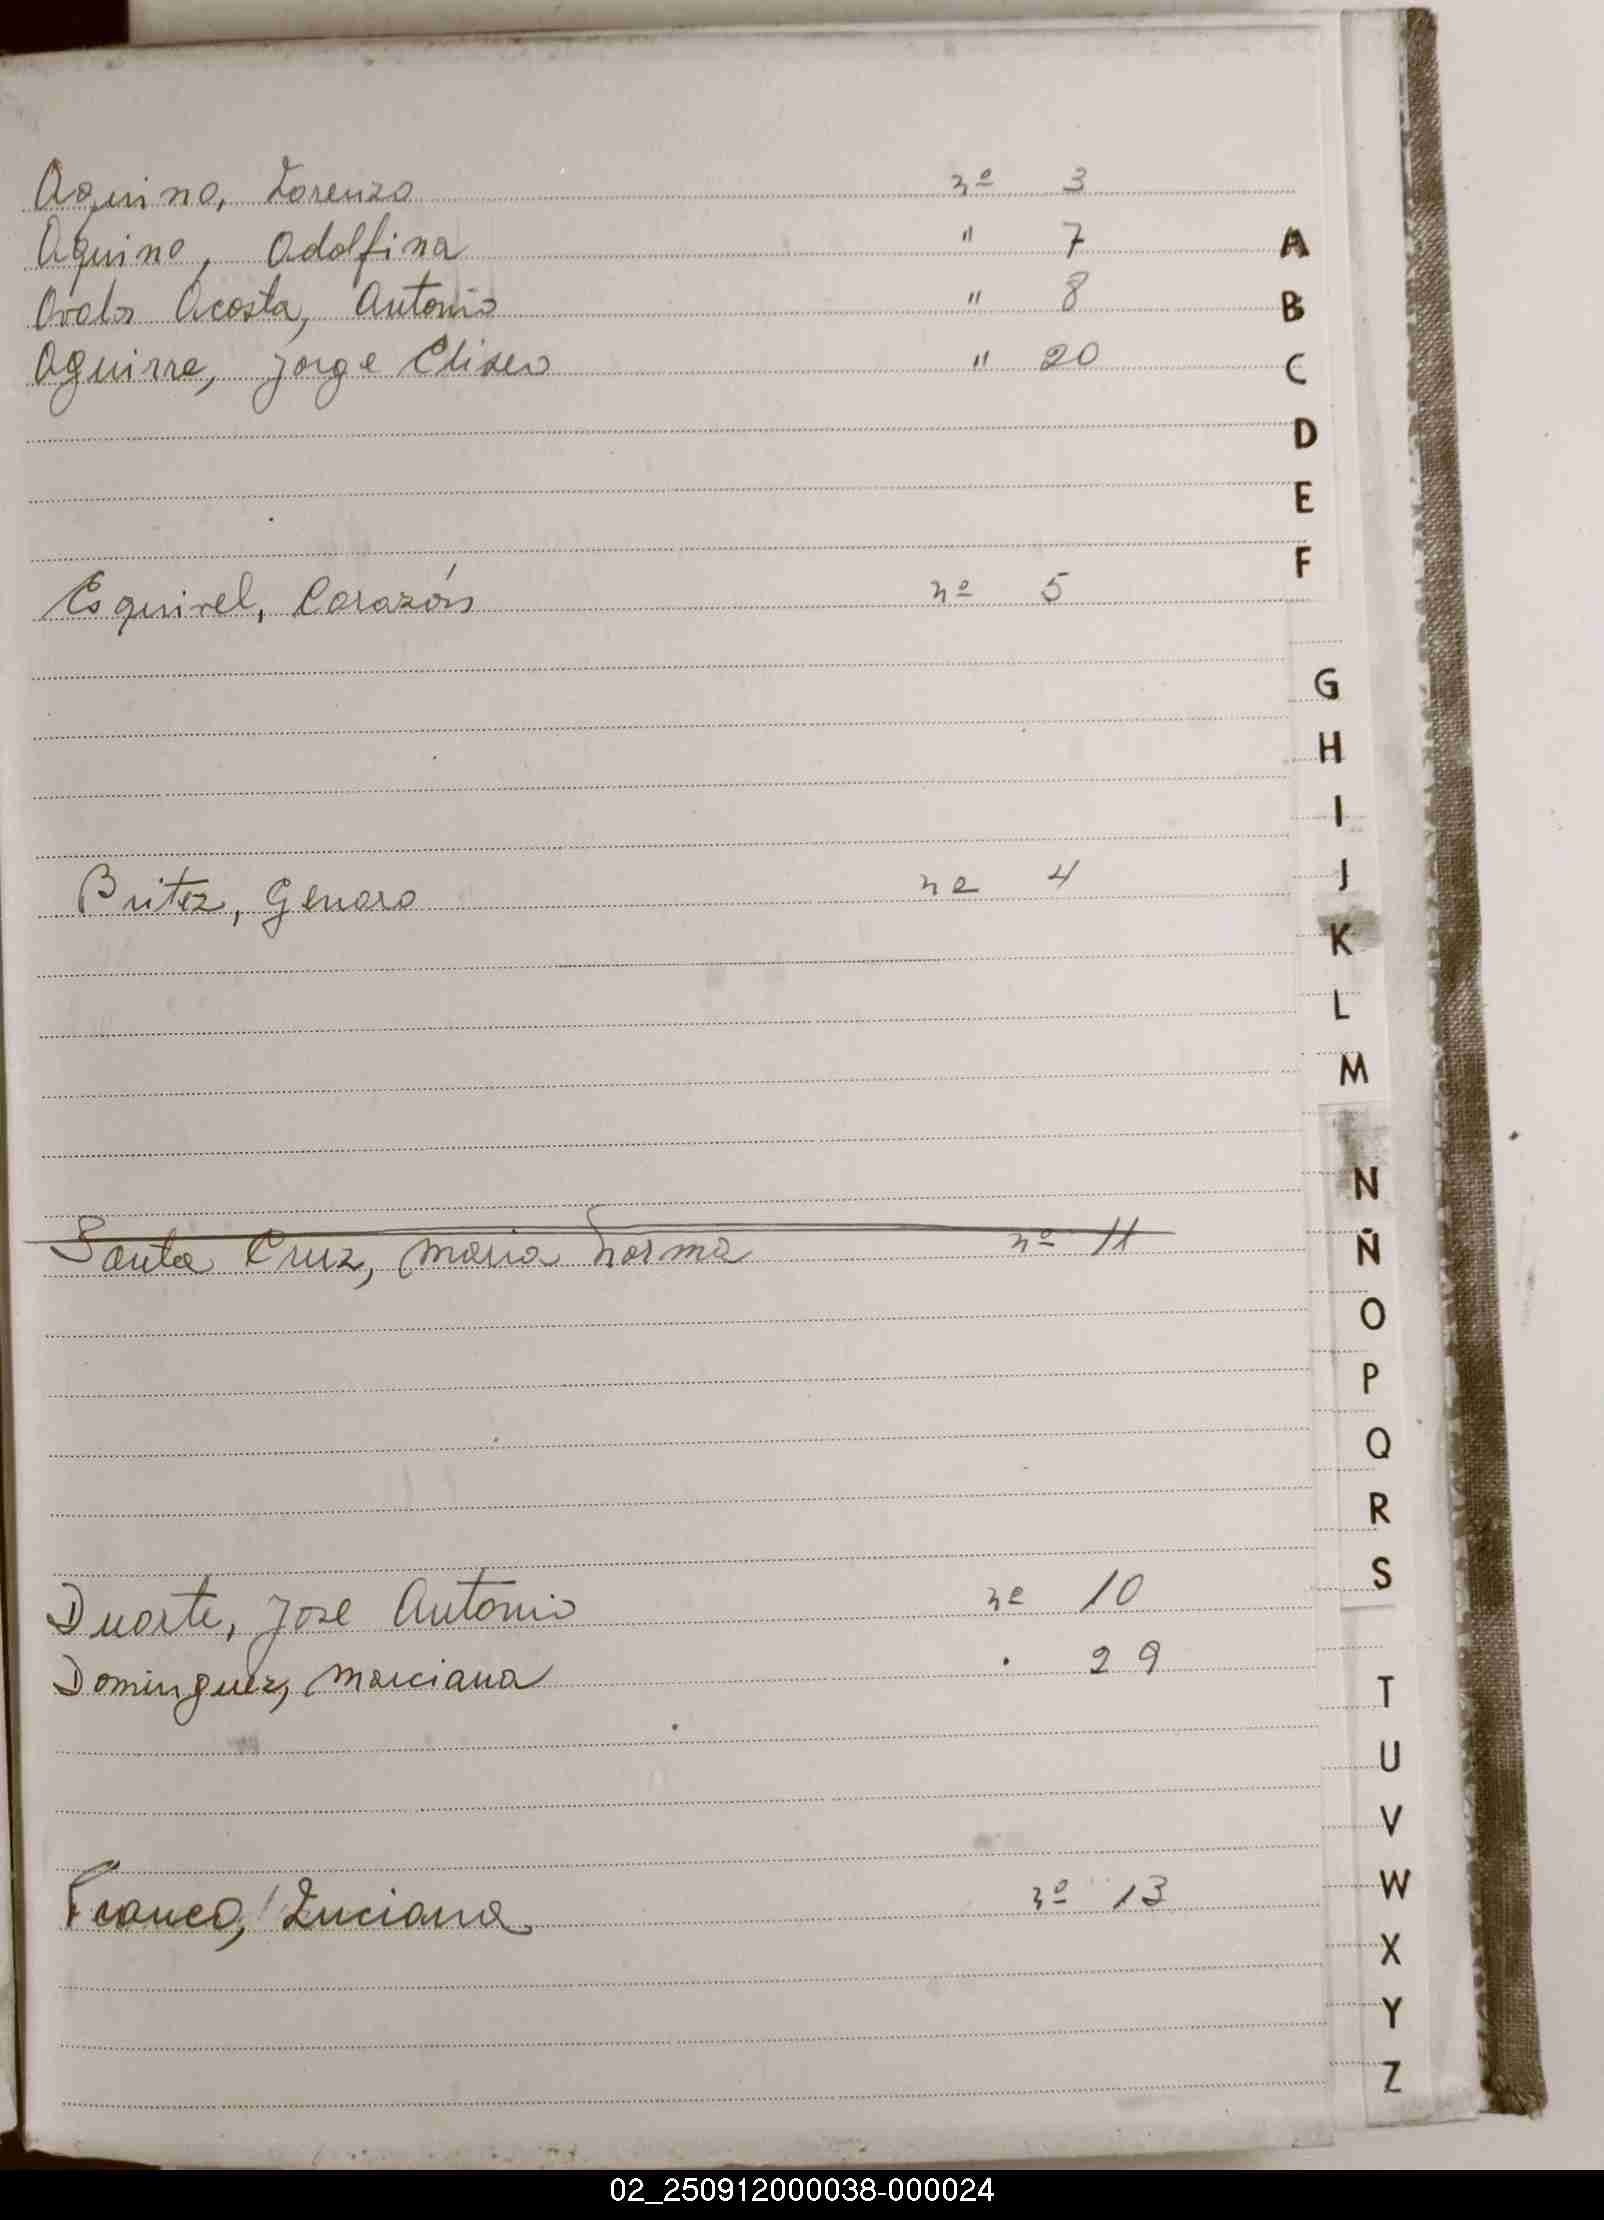 Aquino, Lorenzo nº 3
Aquino, Adolfina " 7
A
Avalos Acosta, Antonio " 8
B
Aguirre, Jorge Eliseo " 20
C
D
E
F
Esquivel, Corazón nº 5
G
H
I
J
Britez, Genaro nº 4
K
L
M
N
Santa Cruz, Maria Norma nº 11
Ñ
O
P
Q
R
S
Duarte, Jose Antonio nº 10
Dominguez, Marciana . 29
T
U
V
W
Franco, Luciana nº 13
X
Y
Z
02_250912000038-000024